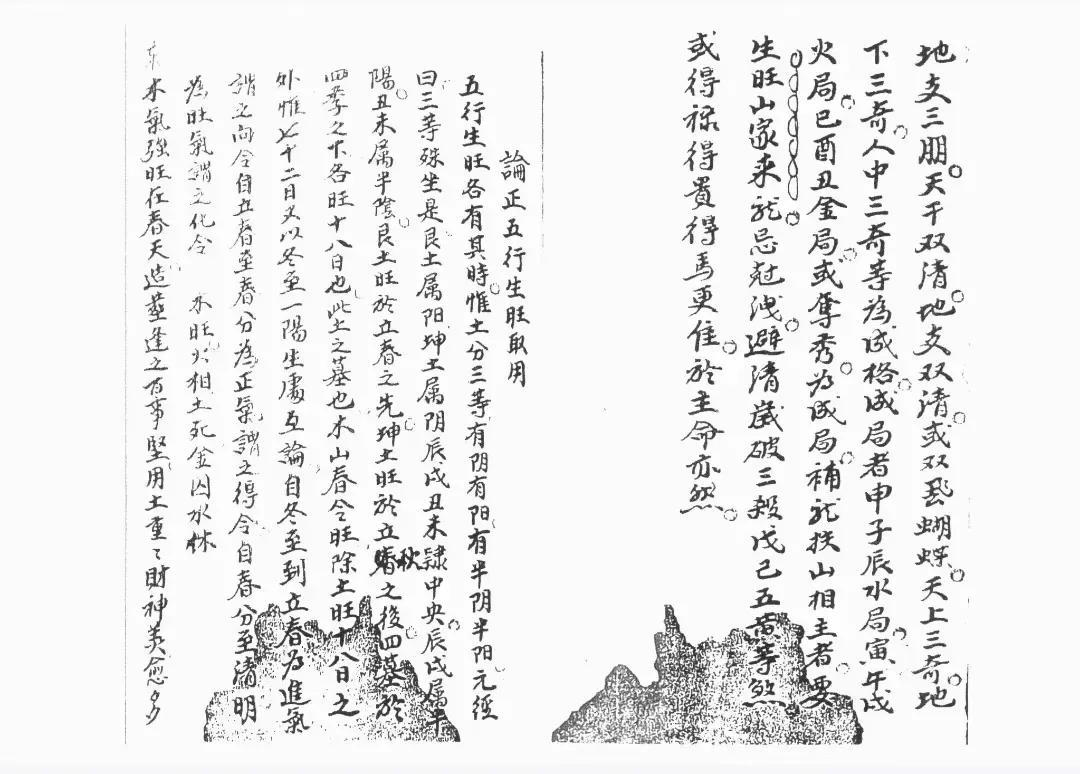 地支三朋天干双清地支双清或双飛蝴蝶天上三奇地
下三奇人中三奇等為成格成局者申子辰水局寅午戌
火局巳酉丑金局或奪秀为成局補龙扶山相主者要
生旺山家来龙忌尅洩避清歲破三殺戊己五黄等煞
或得禄得貴得馬更佳於主命亦然
論正五行生旺取用
五行生旺各有其時惟土分三等有阴有阳有半阴半阳元經
曰三等殊坐是艮土属阳坤土属阴辰戌丑未隸中央辰戌属半
陽丑未属半陰艮土旺於立春之先坤土旺於立秋之後四墓於
四季之下各旺十八日也此土之墓也木山春令旺除土旺十八日之
外惟七十二日又以冬至一陽生處互論自冬至到立春为進氣
謂之向令自立春至春分為正氣謂之得令自春分至清明
為旺氣謂之化令 木旺火相土死金囚水休
木氣強旺在春天造塟逢之百事堅用土重〻財神美愈多